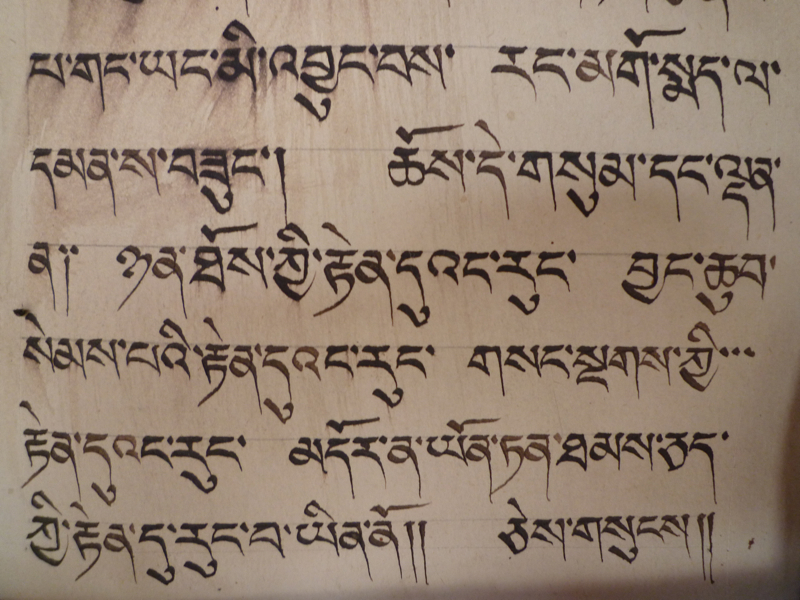 པ་གང་ཡང་མི་འབྱུང་བས་ རང་མགོ་སྨད་ལ་
དམན་ས་བཟུང་། ཆོས་དེ་གསུམ་དང་ལྡན་
ན༑ ཉན་ཐོས་ཀྱི་རྟེན་དུའང་རུང་ བྱང་ཆུབ་
སེམས་པའི་རྟེན་དུའང་རུང་ གསང་སྔགས་ཀྱི་་་
རྟེན་དུའང་རུང་ མདོར་ན་ཡོན་ཏན་ཐམས་ཅད་
ཀྱི་རྟེན་དུ་རུང་བ་ཡིན་ནོ།། ཅེས་གསུངས།།